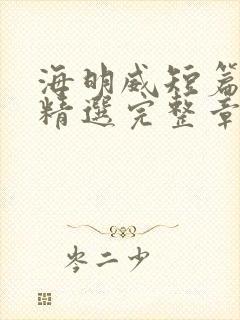 海明威短篇
精選完整章
岑二少